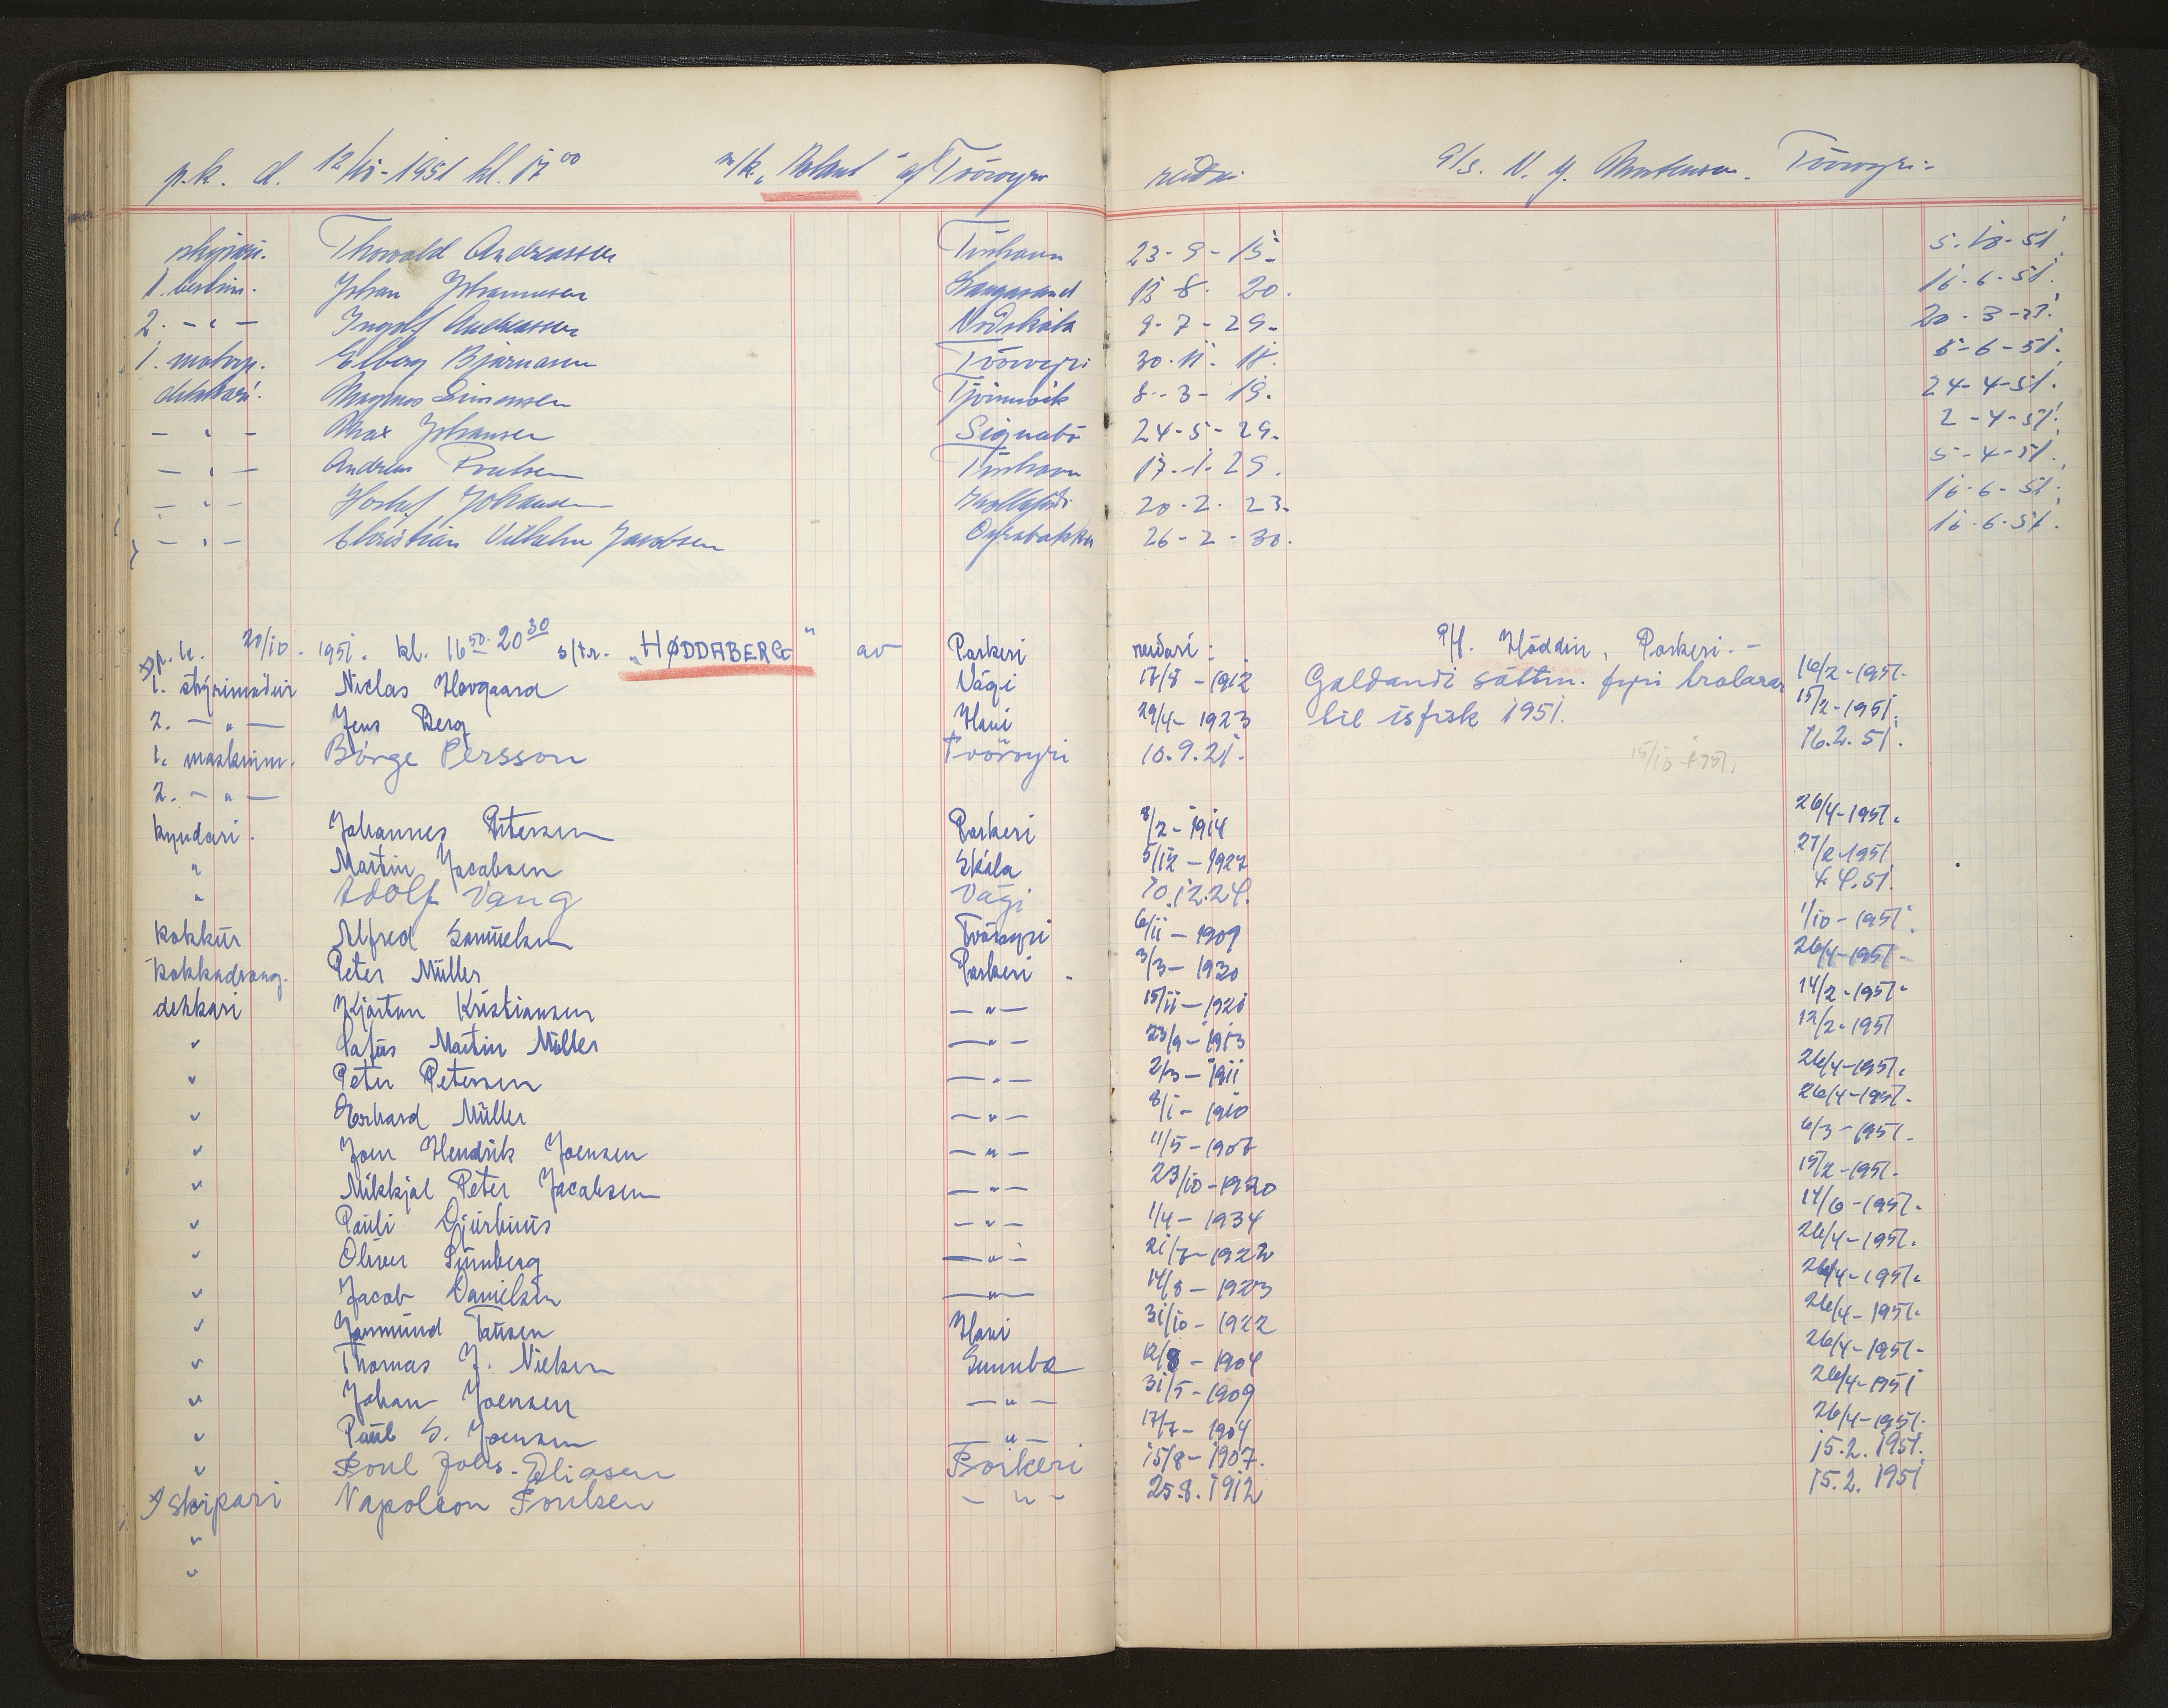 p.k. d. 12/10-1951 kl. 17 00 m/k. " " af Tvöroyri reiðari P/f. N. J. Mortensen. Tvöroyri.-
skipari. Thorvald Andreassen Tórshavn 23-9-15- 5-10-51
1. bestim. Johan Johannesen Langasand 12-8-20. 16-6-51.
2. -"- Ingolf Andreassen Norðskála 9-7-29- 20-3-51
1. motorp. Elberg Bjarnasen Tvöroyri 30-11-18. 8-6-51.
dekkari. Magnus Simonsen Tjörnuvík 8-3-19. 24-4-51.
-"- Max Johansen Signabö 24-5-29. 2-4-51.
-"- Andrew Poulsen Tórshavn 17-1-29. 5-4-51.
-"- Johansen Kollafirði 20-2-23. 16-6-51.
-"- Christian Vilhelm Jacobsen Oyrabakka 26-2-30. 16-6-51.
p.k. 20/10. 1951. kl. 16 50 20 30 s/tr. "HØDDABERG" av Porkeri reiðari: P/f. Höddin, Porkeri.-
1. stýrimaður Niclas Hovgaard Vági 17/8-1912 Galdandi sáttm. fyri trolarar 16/2-1951.
2. -"- Jens Berg Havi 29/4-1923 til ísfisk 1951. 15/2-1951.
1. maskinm. Börge Persson Tvöroyri 10.9.21. 15/10-1951. 16.2.51.
2. -"-
kyndari. Johannes Petersen Porkeri 8/2-1914 26/4-1951.
" Martin Jacobsen Skála 5/12-1927 27/2-1951
" Adolf Vang Vági 10.12.24. 4.4.51.
kokkur Alfred Samuelsen Tvöroyri 6/11-1909 1/10-1951.
kokkadrong. Peter Müller Porkeri. 3/3-1930 26/4-1951-
dekkari Kjartan Kristiansen -"- 15/11-1920 14/2-1951-
" Martin Müller -"- 23/9-1913 12/2-1951
" Peter Petersen -"- 2/3-1911 26/4-1951.
" Erhard Müller -"- 8/1-1910 26/4-1951-
" Joen Hendrik Joensen -"- 11/5-1906 6/3-1951-
" Mikkjal Peter Jacobsen -"- 23/10-1920 15/2-1951-
" Pauli Djurhuus -"- 1/4-1934 14/6-1951-
" Oliver Sumberg -"- 21/7-1922 26/4-1951.
" Jacob Danielsen -"- 14/8-1923 26/4-1951.
" Jarmund Tausen Havi 31/10-1922 26/4-1951-
" Thomas J. Nielsen Sunnbø 12/8-1904 26/4-1951-
" Johan Joensen -"- 31/5-1909 26/4-1951
" Paul S. Joensen -"- 17/7-1904 26/4-1951-
" Poul Johs. Eliasen Porkeri 15/8-1907. 15.2.1951.
skipari Napoleon Poulsen -"- 25.8.1912 15.2.1951
"
"